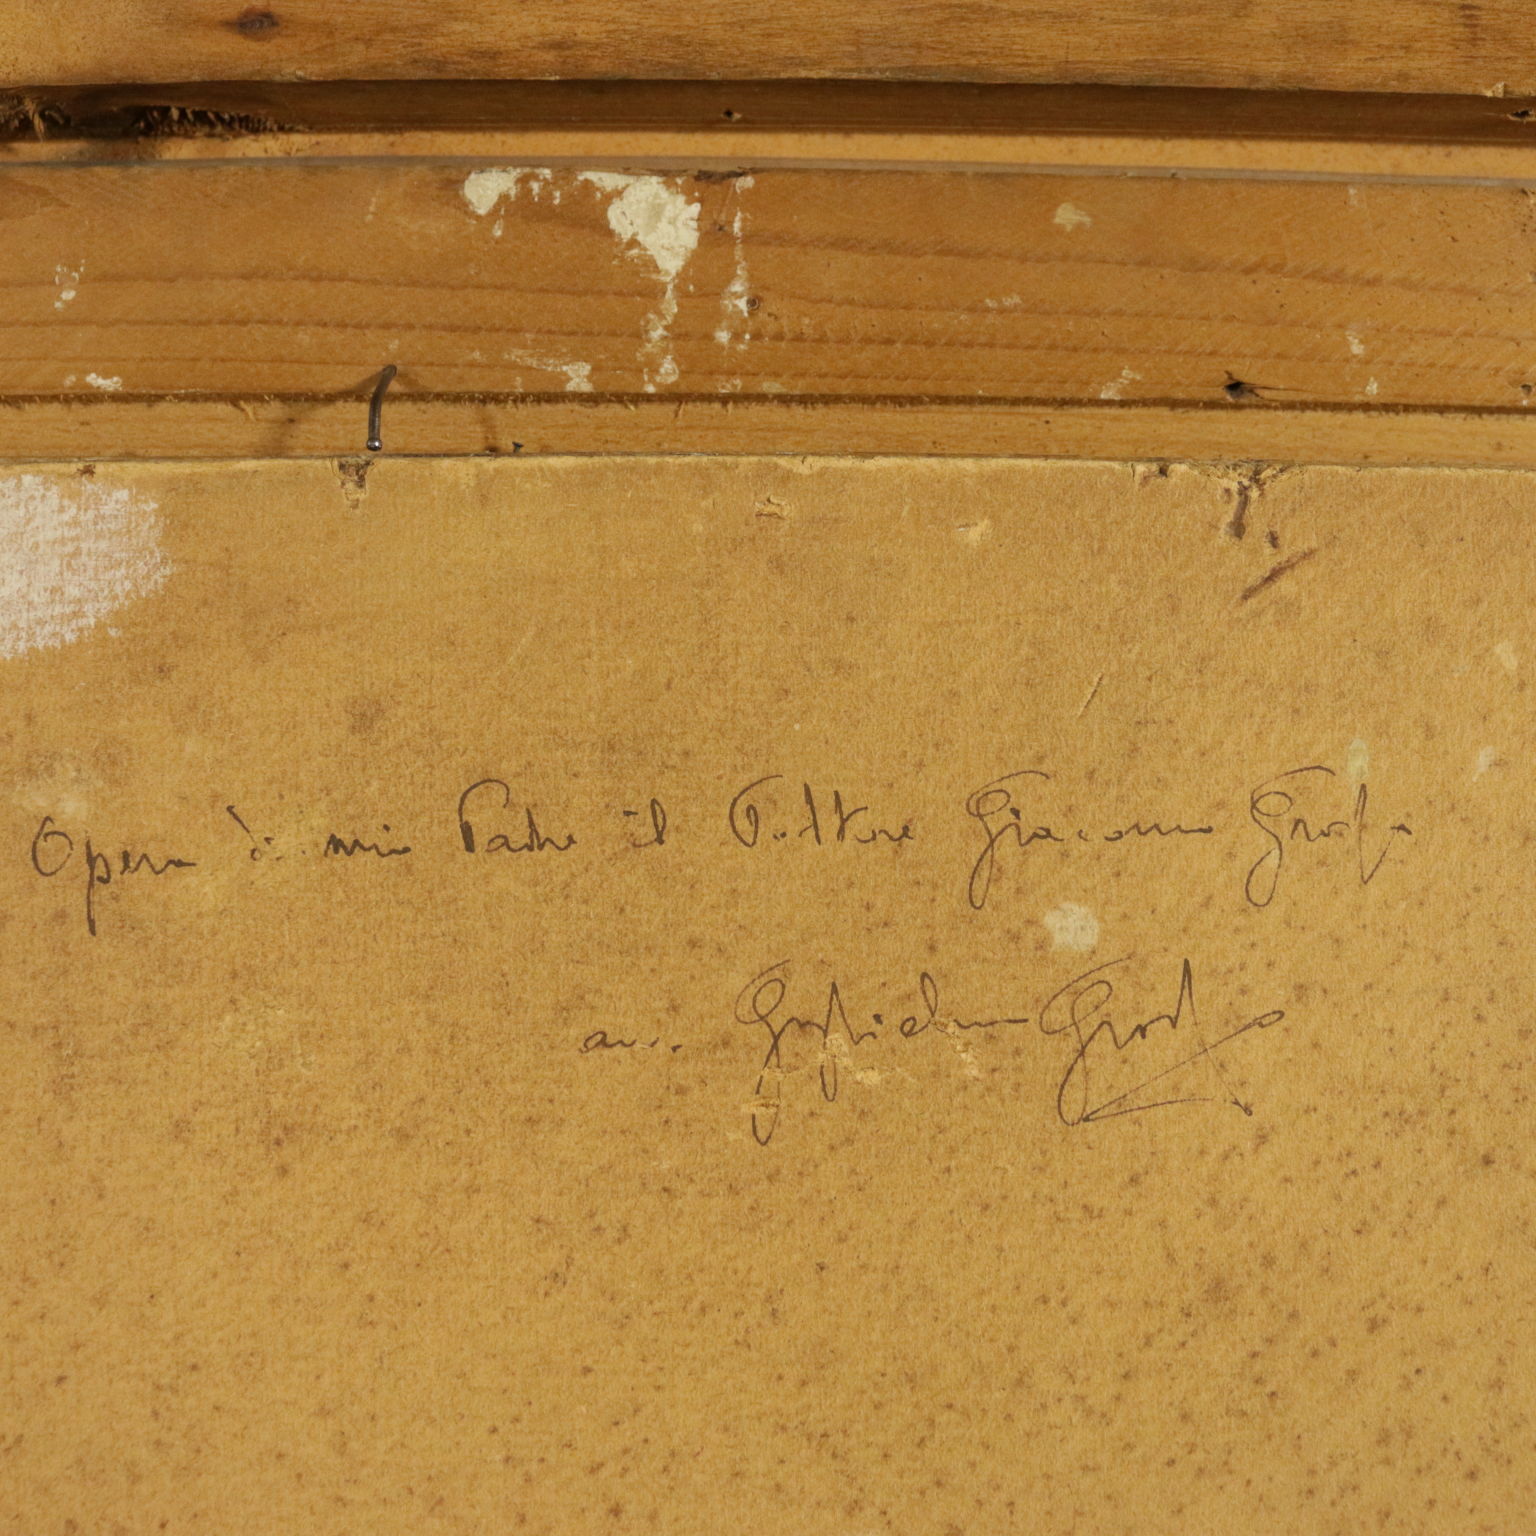 Opera di mio Padre il Pittore Giacomo Grosso
avv. Guglielmo Grosso